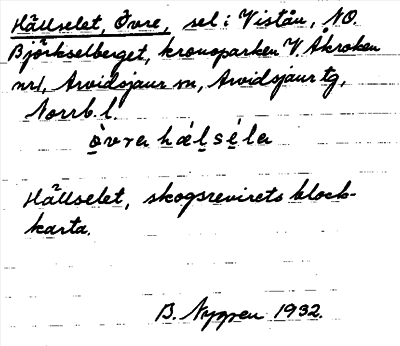 Hällselet, Övre, sel i Vistån, NO.
Björkselberget, kronoparken V. Åkroken
nr1, Arvidsjaur sn, Arvidsjaur tg,
Norrb. l.
övra hälsela
Hällselet, skogsrevirets block-
karta.
B. Nygren 1932.